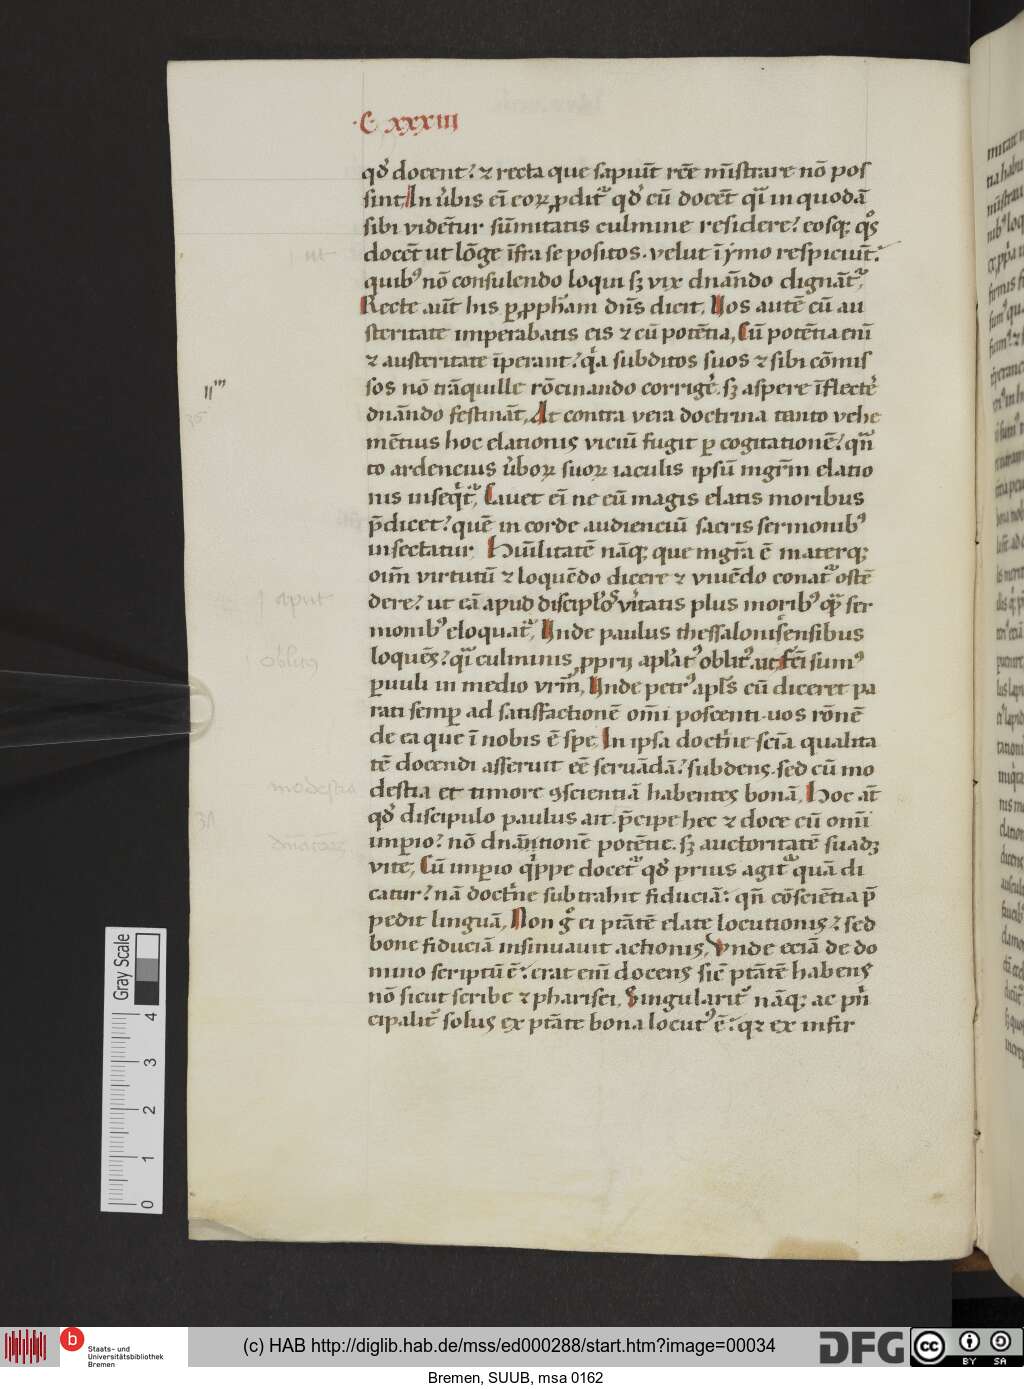 ·C· xxxiii
qd' docent? ⁊ recta que sapiūt rēe mīstrare nō pos
sint In v̓bis ei̅ eoꝝ ꝓditr̄ qd' cū docēt qͥ in quodā
sibi videt̄ur sūmitatis culmine residere? eosqꝫ qͦs
docēt ut lōge īfra se positos . velut ī ymo respiciūt.
quibꝰ nō consulendo loqui sꝫ vix dnāndo dignāt̄,
Recte aūt his ꝑ ꝓpham dn̄s dicit, Uos autē cū au
steritate imperabatis eis ⁊ cū potētia, Cū potētia eni̅
⁊ austeritate īperant? qͥa subditos suos ⁊ sibi cōmis
sos nō trāquille rōcinando corrigēˀ sꝫ aspere īflectēˀ
dnāndo festināt, At contra vera doctrina tanto vehe
mētius hoc elationis viciū fugit ꝑ cogitationē? qn̄
to ardencius v̓boꝝ suoꝝ iaculis ipsū mgr̄m elatio
nis inseqͥt̄, Cauet ei̅ ne eū magis elatis moribus
p̄dicet? quē in corde audienciū sacris sermonibꝰ
insectatur, Hūilitatē nāqꝫ que mgr̄a ē materqꝫ
oīm virtutū ⁊ loquēdo dicere ⁊ viuēdo conat̄ ostē
dere? ut eā apud discip̄los v̓itatis plus moribꝰ qͣꝫ ser
monibꝰ eloquat̄, Unde paulus thessalonisensibus
loquēs? qͥ culminis ꝓprij apl̄atꝰ oblitꝰ. ait fc̄i sumꝰ
ꝑuuli in medio vrīm, Unde petrꝰ apl̄s cū diceret pa
rati sempꝑ ad satisfactionē om̄i poscenti . uos rōnē
de ea que ī nobis ē spe, In ipsa doctͥne sciā qualita
tē docendi asseruit eē seruādā? subdens . sed cū mo
destia et timore ꝯscientiā habentes bonā, Hoc āt
qd' discipulo paulus ait . p̄cipe hec ⁊ doce cū om̄i
imꝑio? nō dnātionē potētie . sꝫ auctoritatē suadꝫ
vite, Cū imꝑio qͥppe docet̄ qd' prius agit̄ quā di
catur? nā doctͥne subtrahit fiduciā? qn̄ cōsciētia p̄
pedit linguā, Non gͦ ei ptātē elate locutionis? sed
bone fiduciā insinuauit actionis, Vnde eciā de do
mino scriptū ē? erat eni̅ docens sic̄ ptātē habens
nō sicut scribe ⁊ pharisei, Singularitꝰ nāqꝫ ac p̄n
cipalitꝰ solus ex ptāte bona locutꝰ ē? qꝛ ex infir
ut
aput
oblitus
modestia
Gray Scale
4
3
2
1
0
Staats- und
Universitätsbibliothek
Bremen
(c) HAB http://diglib.hab.de/mss/ed000288/start.htm?image=00034
DFG
cc BY SA
Bremen, SUUB, msa 0162